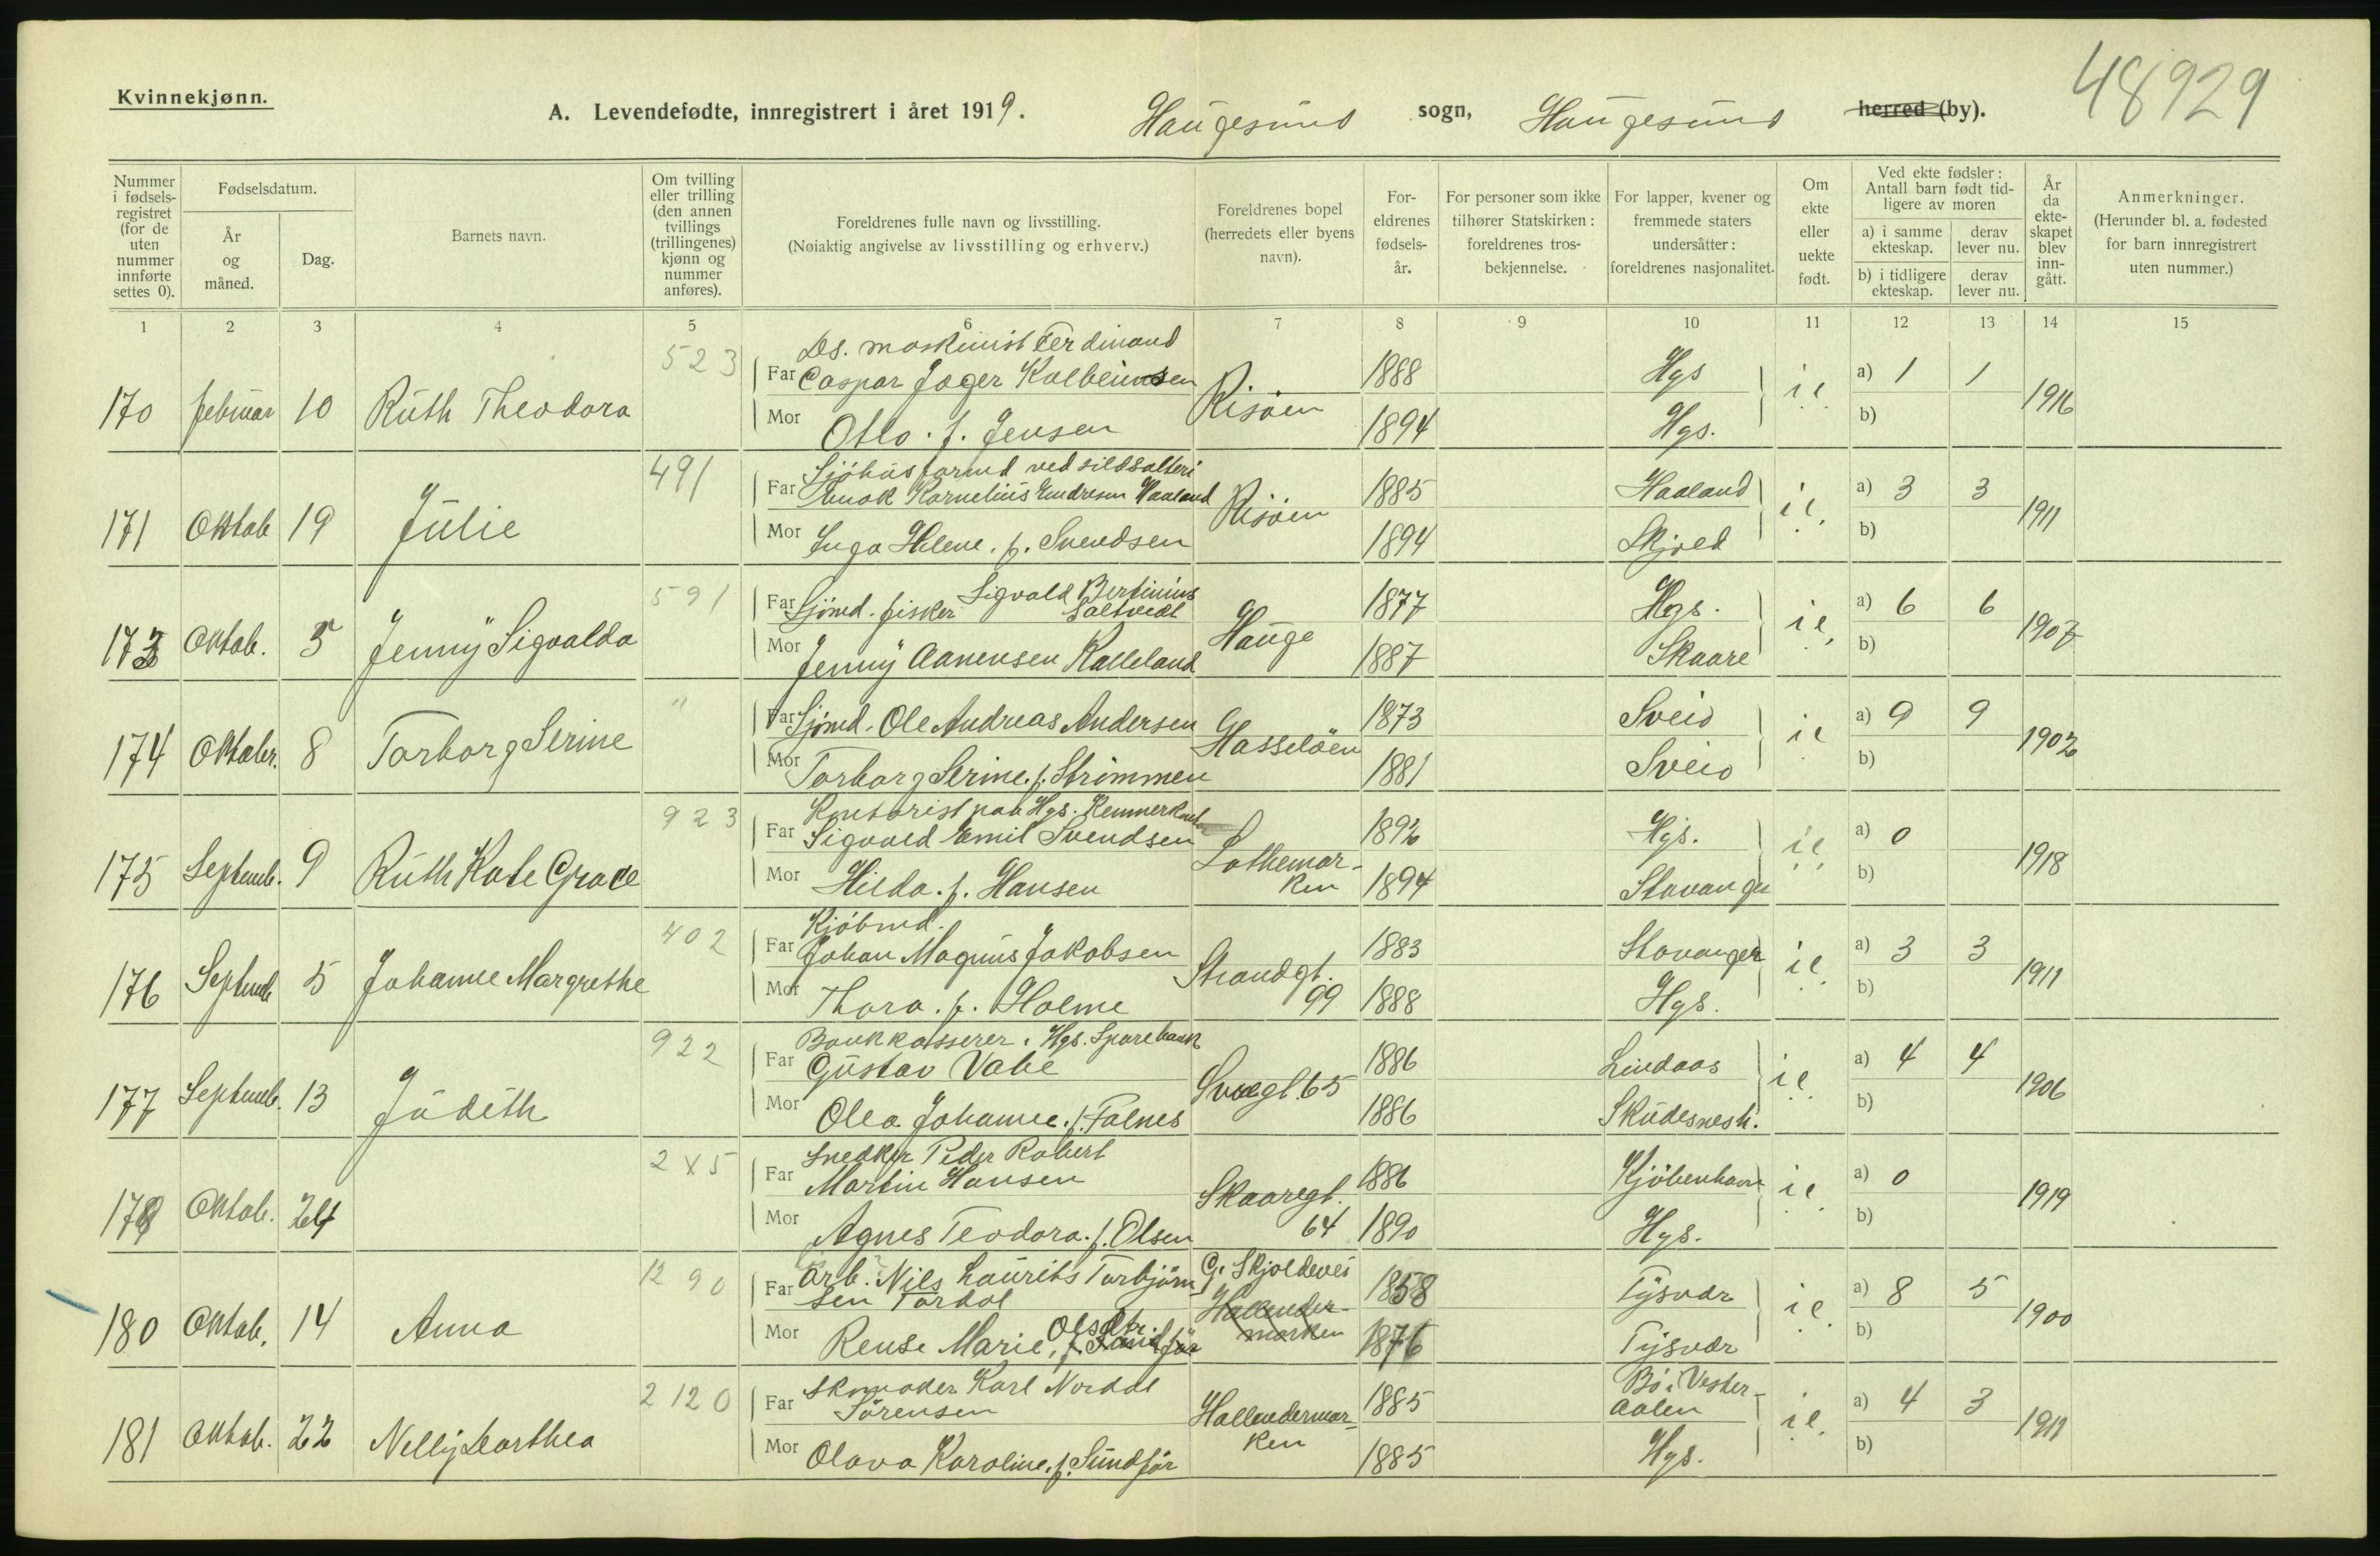 Kvinnekjønn.
48929
A. Levendefødte, innregistrert i året 1919. Haugesund sogn, Haugesund herred (by).
Nummer i fødsels-registret (for de uten nummer innførte settes 0).
Fødselsdatum.
År og måned.
Dag.
Barnets navn.
Om tvilling eller trilling (den annen tvillings (trillingenes) kjønn og nummer anføres).
Foreldrenes fulle navn og livsstilling.
(Nøiaktig angivelse av livsstilling og erhverv.)
Foreldrenes bopel (herredets eller byens navn).
For-eldrenes fødsels-år.
For personer som ikke tilhører Statskirken: foreldrenes tros-bekjennelse.
For lapper, kvener og fremmede staters undersåtter: foreldrenes nasjonalitet.
Om ekte eller uekte født.
Ved ekte fødsler: Antall barn født tid-ligere av moren
a) i samme ekteskap.
derav lever nu.
b) i tidligere ekteskap.
derav lever nu.
År da ekte-skapet blev inn-gått.
Anmerkninger.
(Herunder bl. a. fødested for barn innregistrert uten nummer.)
1 2 3 4 5 6 7 8 9 10 11 12 13 14 15
523 Ds. maskinist Ferdinand
Far Caspar Jæger Kolbeinsen 1888 Hgs a) 1 1
170 februar 10 Ruth Theodora Risöen i.e. 1916
Mor Otto. f. Jensen 1894 Hgs. b)
491 Sjöhusformd ved sildsalteri
Far Enok Kornelius Endresen Haaland 1885 Haaland a) 3 3
171 Oktob 19 Julie Risöen i.e. 1911
Mor Inga Helene. f. Svendsen 1894 Skjold b)
591 Sigvald Bertinius
Far Sjömd. fisker Saltvedt 1877 Hgs. a) 6 6
173 Oktob. 5 Jenny Sigvalda Hauge i.e. 1907
Mor Jenny Aanensen Kalleland 1887 Skaare b)
" Far Sjömd. Ole Andreas Andersen 1873 Sveio a) 9 9
174 Oktober. 8 Torborg Serine Hasselöen i.e 1902
Mor Torborg Serine. f. Strömmen 1881 Sveio b)
923 Kontorist paa Hgs. Kemnerkont
Far Sigvald Emil Svendsen 1892 Hgs. a) 0
175 Septemb. 9 Ruth Kate Grace Lothemar-ken i.e. 1918
Mor Hilda. f. Hansen 1894 Stavanger b)
402 Kjöbmd.
Far Johan Magnus Jakobsen 1883 Stavanger a) 3 3
176 Septemb 5 Johanne Margrethe Strandgt. 99 i.e. 1911
Mor Thora. f. Holme 1888 Hgs. b)
922 Bankkasserer i Hgs. Sparebank
Far Gustav Valie 1886 Lindaas a) 4 4
177 Septemb. 13 Judith Svaegt. 65 i.e. 1906
Mor Olea Johanne. f. Falnes 1886 Skudesnesh. b)
2 X 5 Snedker Peder Robert
Far Martin Hansen 1886 Kjöbenhavn a) 0
178 Oktob. 24 Skaaregt. 64 i.e. 1919
Mor Agnes Teodora. f. Olsen 1890 Hgs. b)
12 90 Far Arb. Nils Laurits Torbjörn-sen Tordal G. Skjoldevei 1858 Tysvær a) 8 5
180 Oktob. 14 Anna Hallender-marken i.e. 1900
Mor Rense Marie, Olsdtr. 1876 Tysvær b)
2 120 Skomaker Karl Nordal
Far Sörensen 1885 Bö i Vester-aalen a) 4 3
181 Oktob. 22 Nelly Dorthea Hallendermar-ken i.e. 1911
Mor Olava Karoline. f. Sundför 1885 Hgs. b)